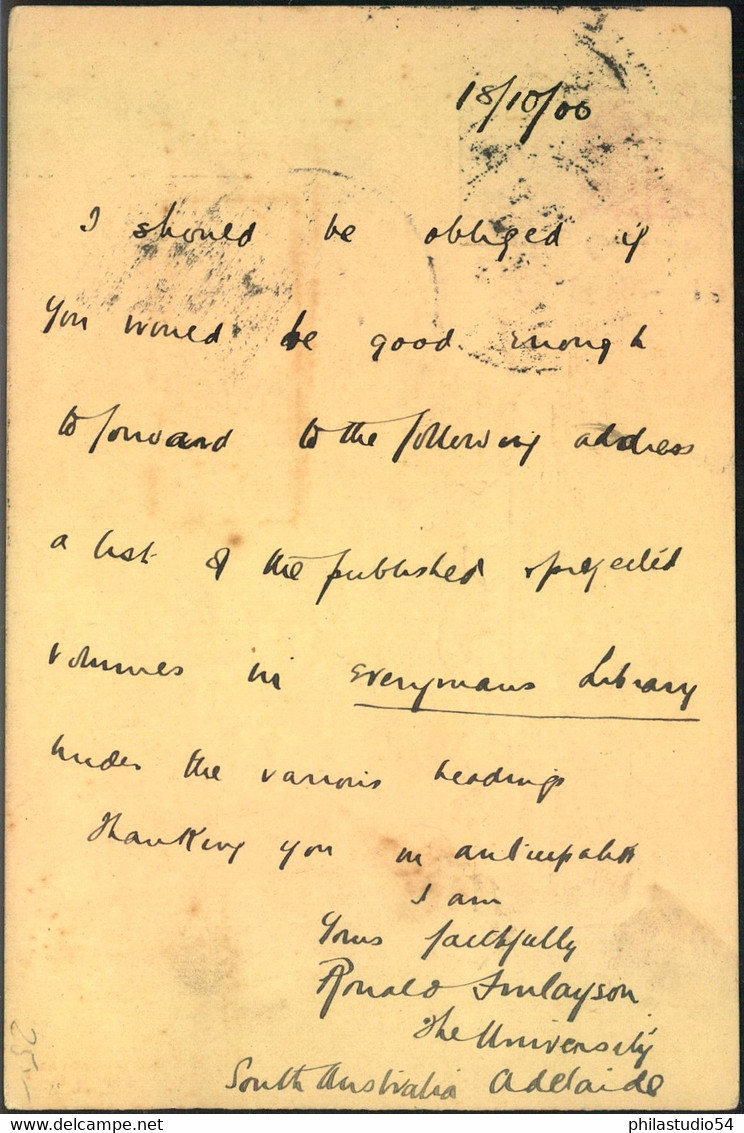 18/10/06
I should be obliged if
you would be good enough
to forward to the following address
a list of the published & projected
volumes in Everymans Library
under the various headings
Thanking you in anticipation
I am
Yours faithfully
Ronald Finlayson
The University
South Australia Adelaide
25.-
philastudio54